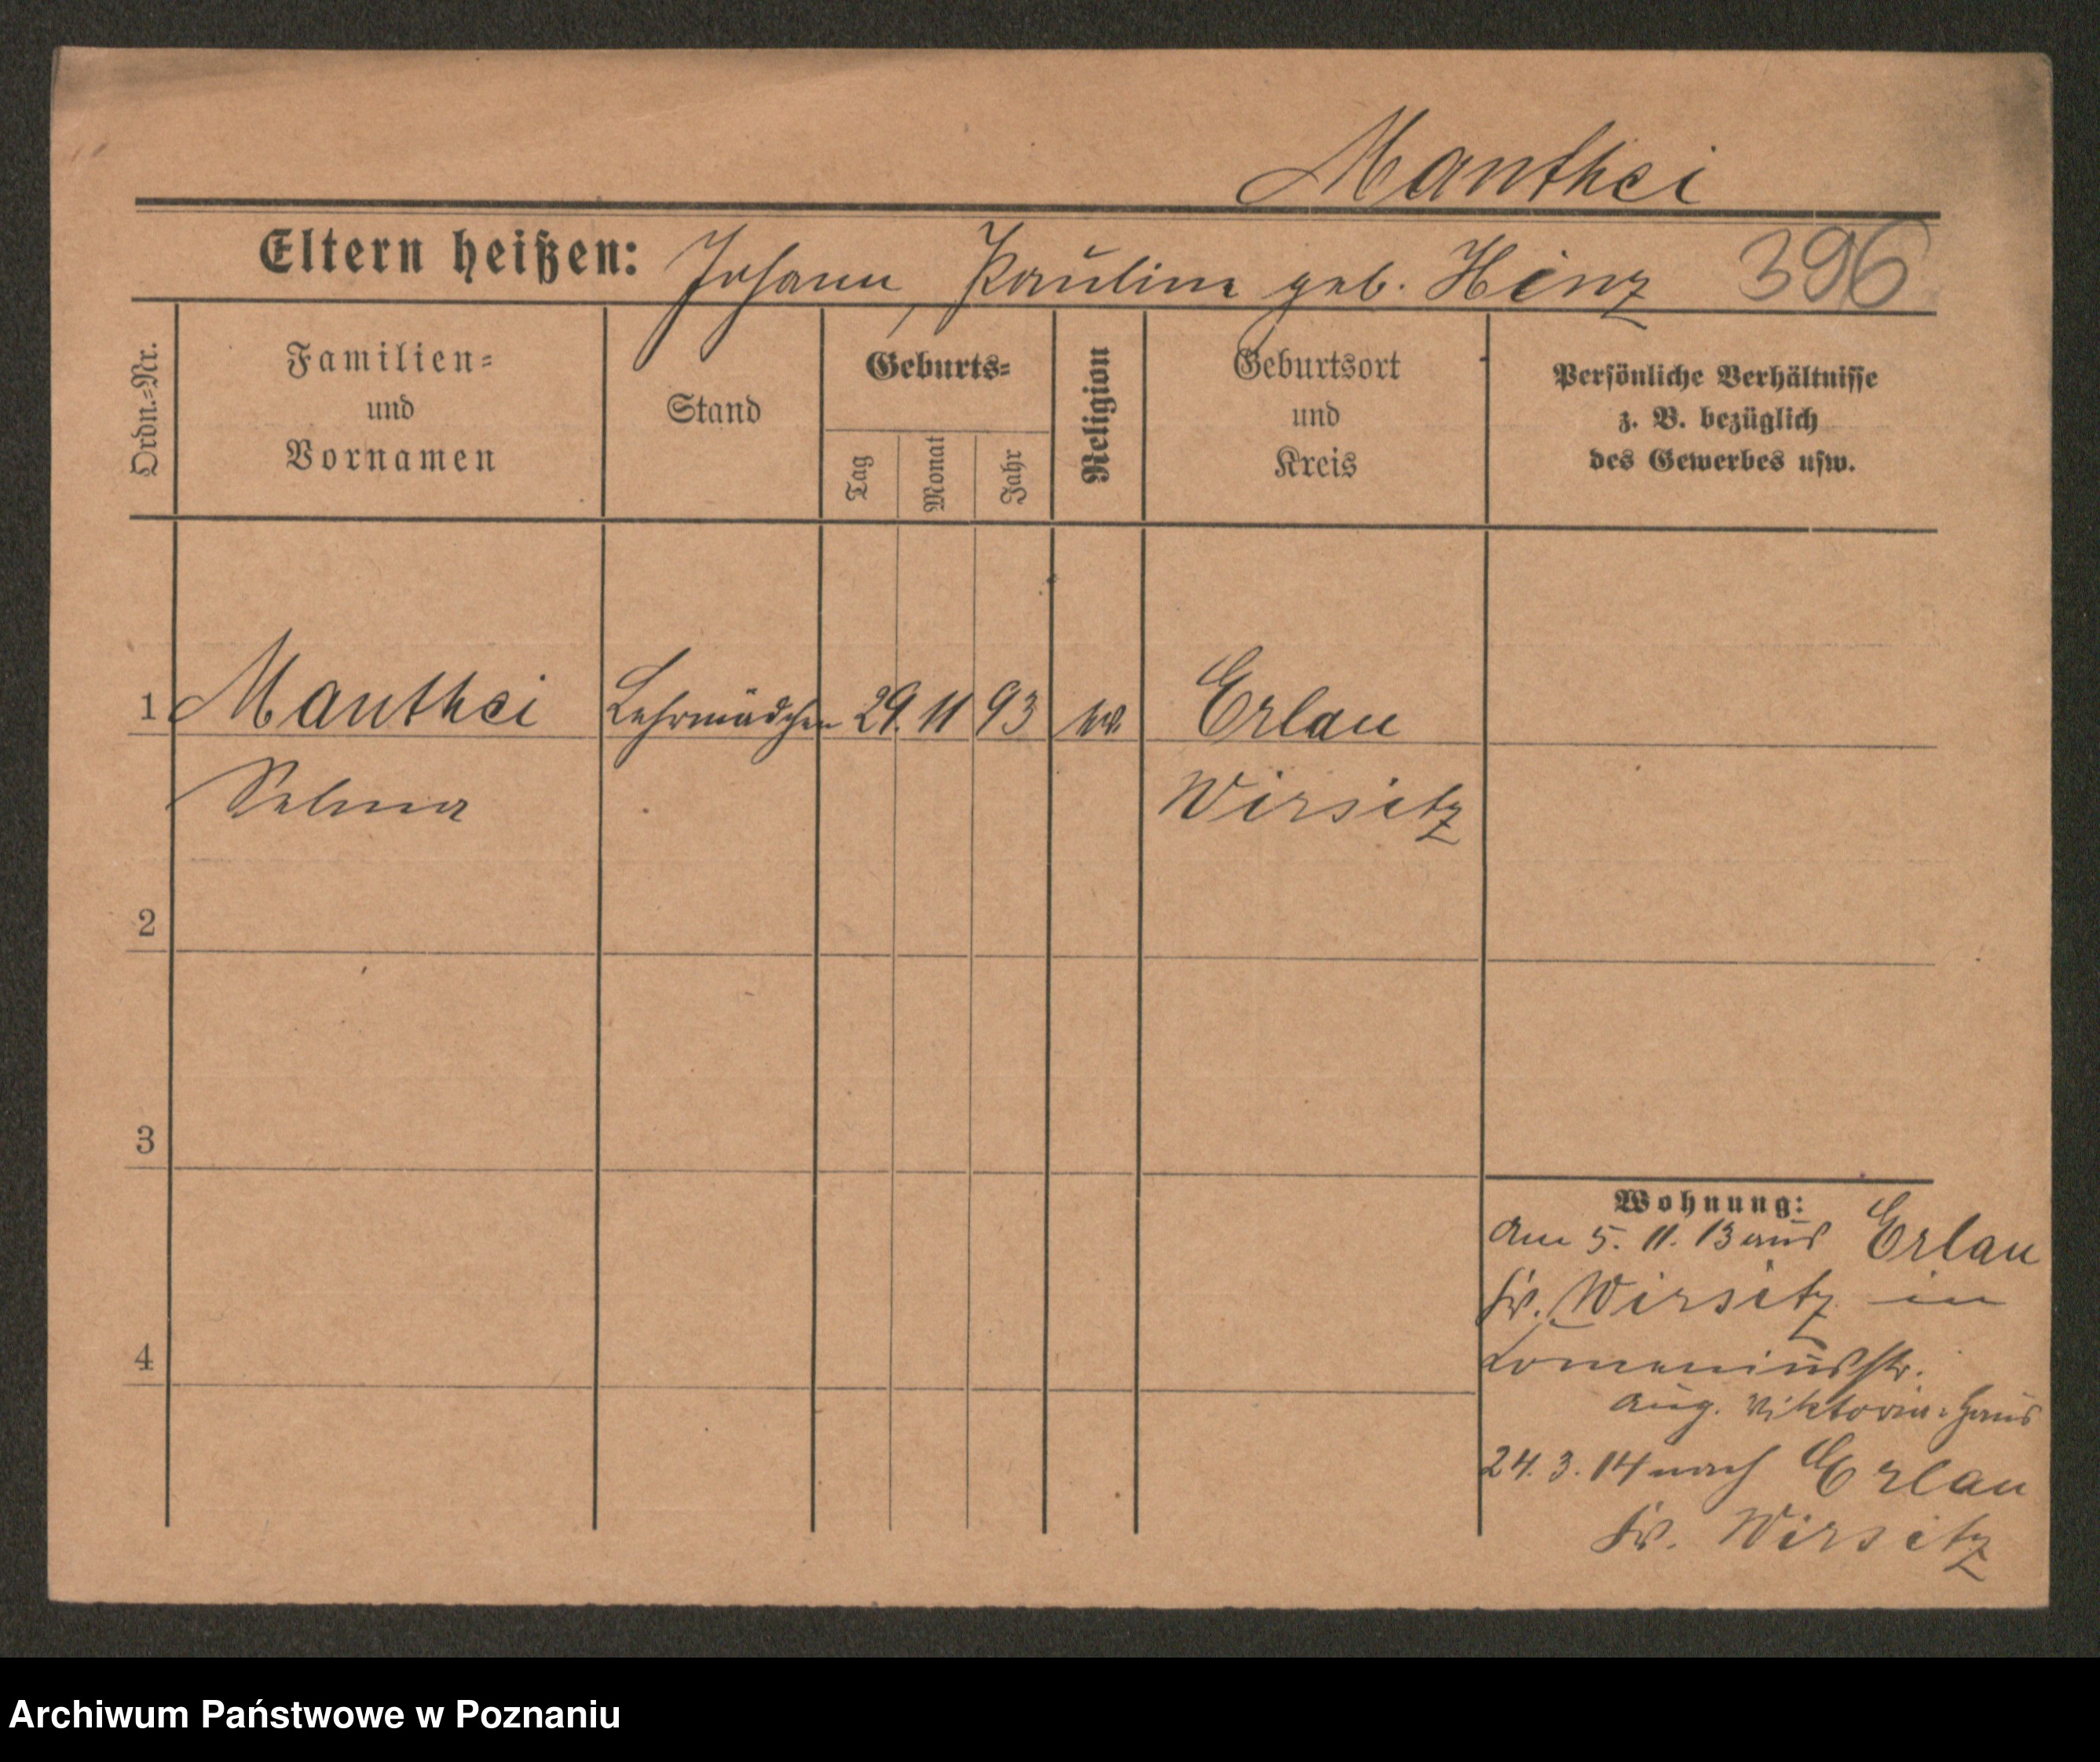 Manthei
Eltern heißen: Johann, Pauline geb. Hinz 396
Ordn.=Nr.
Familien=
und
Vornamen
Stand
Geburts=
Tag
Monat
Jahr
Religion
Geburtsort
und
Kreis
Persönliche Verhältnisse
z. B. bezüglich
des Gewerbes usw.
1 Manthei Lehrmädchen 29. 11 93 ev. Erlau
Selma Wirsitz
2
3
4
Wohnung:
am 5. 11. 13 aus Erlau
Kr. Wirsitz in
Comeniusstr.
Aug. Viktoria=Haus
24. 3. 14 nach Erlau
Kr. Wirsitz
Archiwum Państwowe w Poznaniu